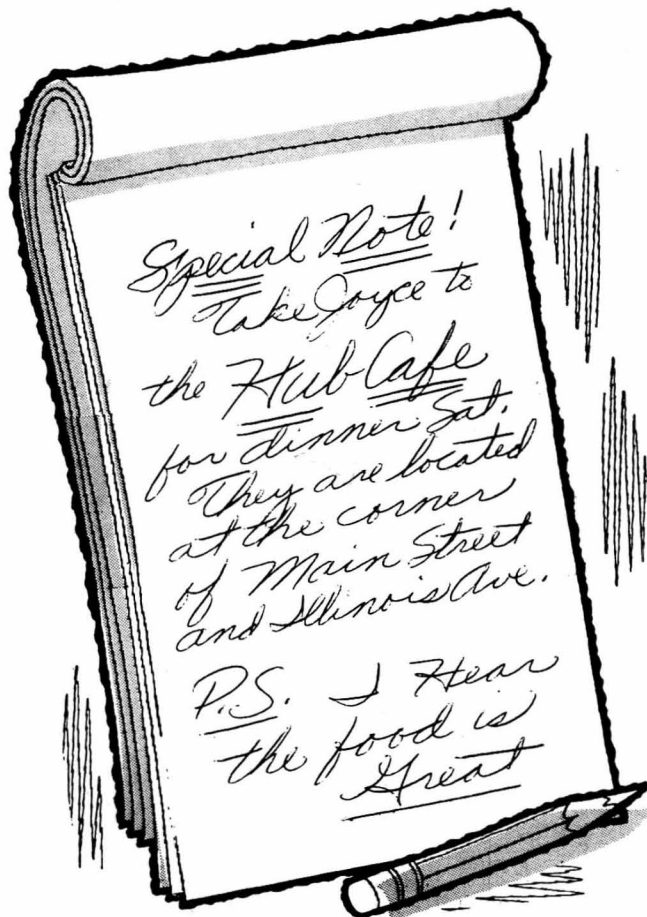 Special Note!
Take Joyce to
the Hub Cafe
for dinner Sat.
They are located
at the corner
of Main Street
and Illinois Ave.
P.S. I Hear
the food is
Great